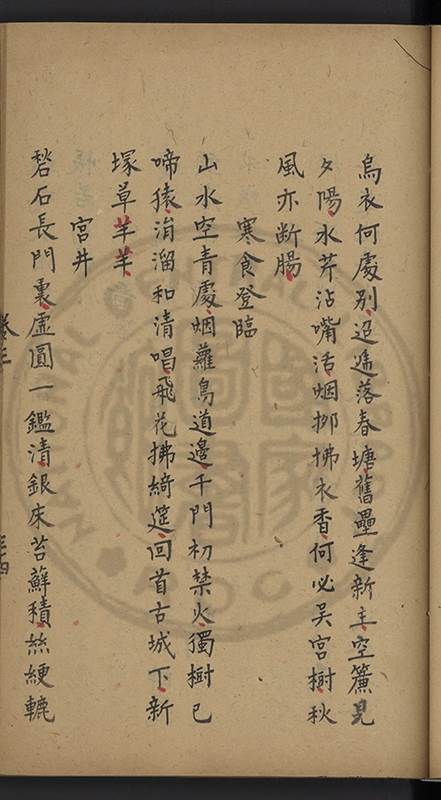 烏衣何處別迢遞落春塘舊壘逢新主空簾見
夕陽水芹沾嘴活烟柳拂衣香何必吴宫樹秋
風亦断腸
寒食登臨
山水空青處烟蘿鳥道邊千門初禁火獨樹已
啼猿涓溜和清唱飛花拂綺筵回首古城下新
塚草芊芊
宫井
甃石長門裏虚圓一鑑清銀床苔蘚積絲綆轆